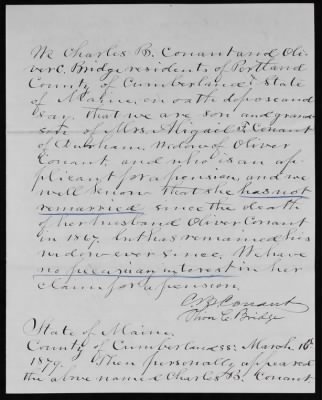 We Charles B. Conant and Oli-
ver C. Bridge residents of Portland
County of Cumberland & State
of Maine, on oath depose and
say, that we are son and grand
son of Mrs. Abigail Conant
of Durham, widow of Oliver
Conant, and who is an ap-
plicant for a pension, and we
well know that she has not
remarried since the death
of her husband Oliver Conant
in but has remained his
widow ever since. We have
no pecunian interest in her
claim for a pension.
C. B. Conant
C Bridge
State of Maine.
County of Cumberland ss: March 10th
1879. Then personally appeared
the above named Charles B. Conant